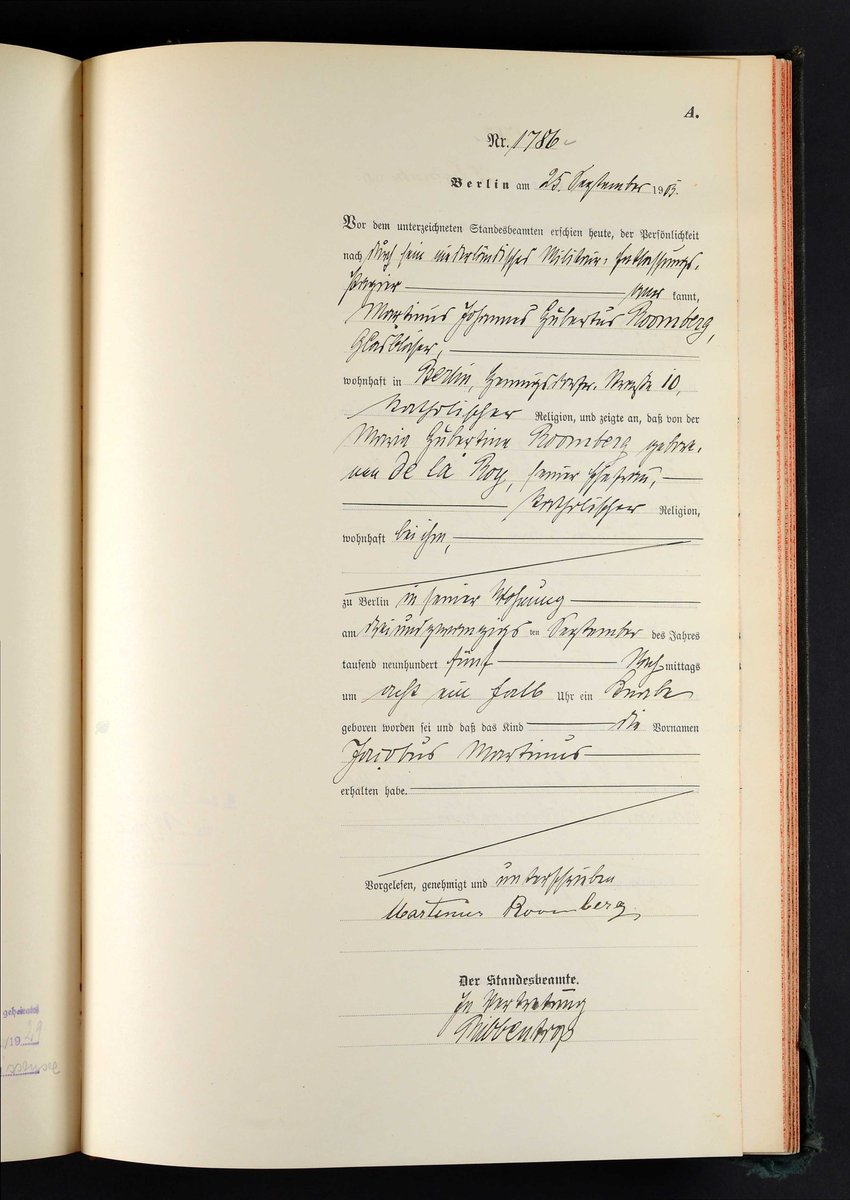 A.
Nr. 1786
Berlin am 25. September 1905.
Vor dem unterzeichneten Standesbeamten erschien heute, der Persönlichkeit
nach durch sein niederländisches Militair-Entlassungs-
papier aner kannt,
Martinus Johannes Hubertus Roomberg,
Glasbläser,
wohnhaft in Berlin, Hennigsdorfer-Straße 10,
katholischer Religion, und zeigte an, daß von der
Maria Hubertina Roomberg gebore-
nen de la Roy, seiner Ehefrau,
katholischer Religion,
wohnhaft bei ihm,
zu Berlin in seiner Wohnung
am dreiundzwanzigsten September des Jahres
tausend neunhundert fünf Nachmittags
um acht ein halb Uhr ein Knabe
geboren worden sei und daß das Kind die Vornamen
Jacobus Martinus
erhalten habe.
Vorgelesen, genehmigt und unterschrieben
Martinus Roomberg
Der Standesbeamte.
In Vertretung
Ribbentrop
geheiratet
/19 29